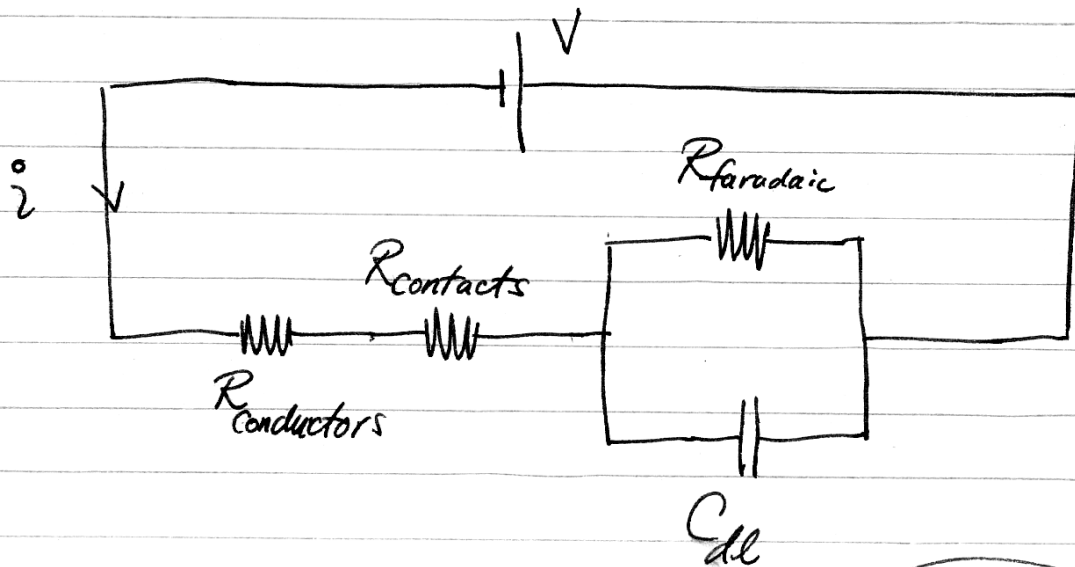 V
R faradaic
i
R contacts
R conductors
C dl